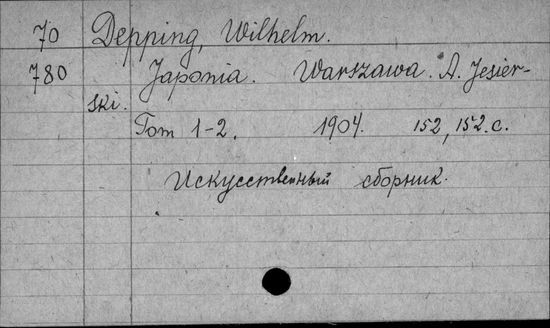 70 Depping, Wilhelm.
780 Japonia. Warszawa. A. Jesier-
ski.
Tom 1-2. 1904. 152, 152. с.
Искусственный сборник.